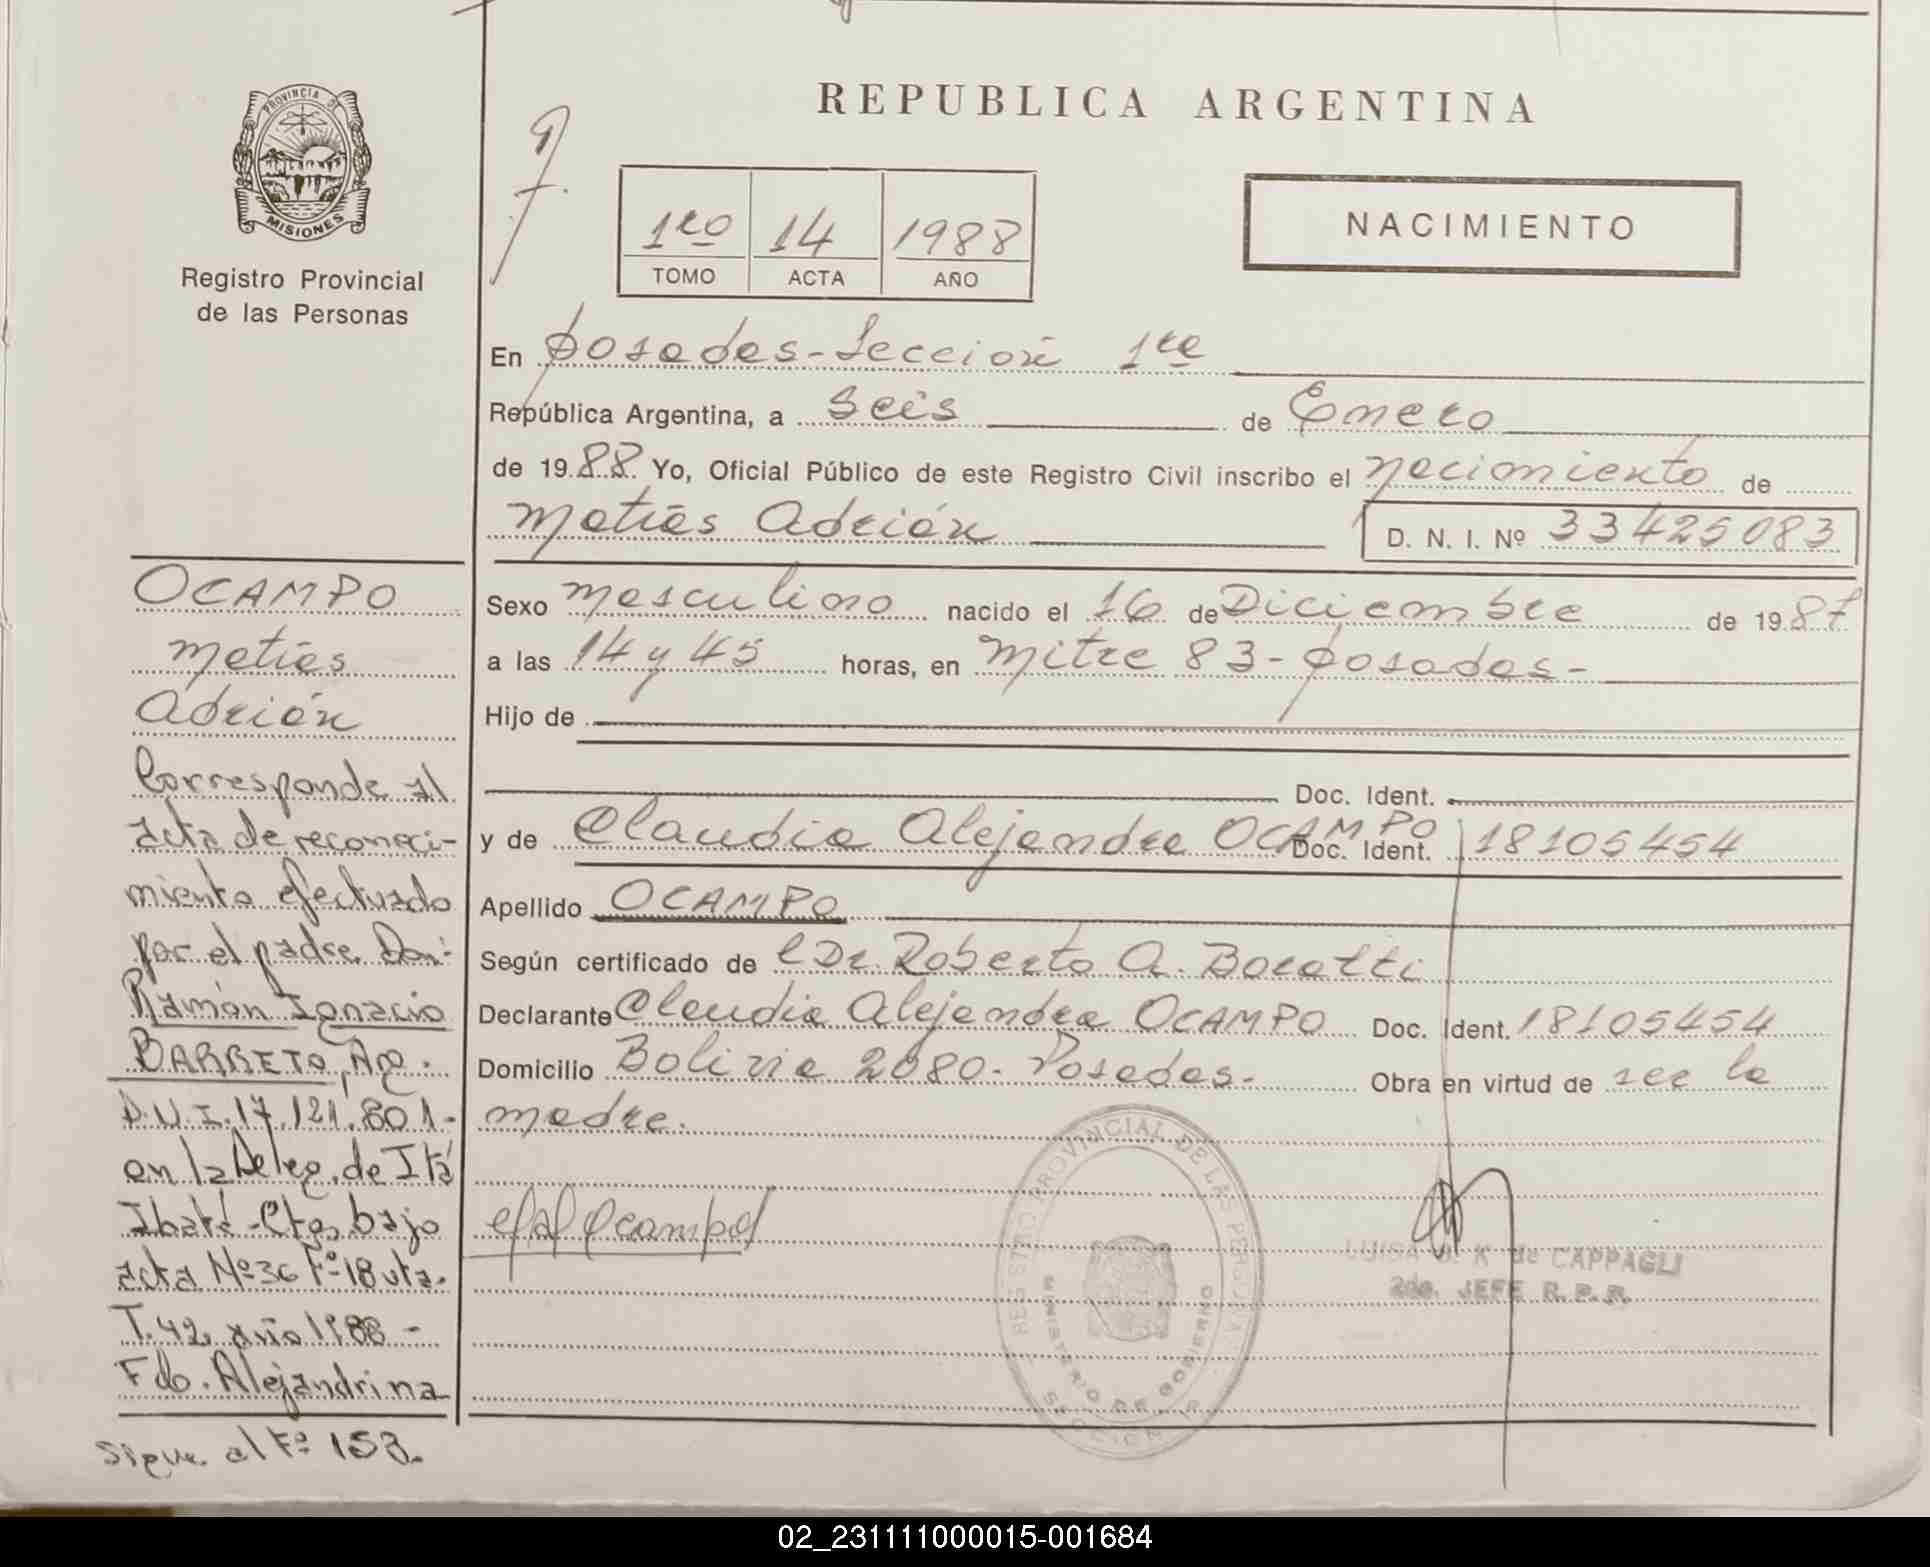 REPUBLICA ARGENTINA
PROVINCIA DE
MISIONES
Registro Provincial
de las Personas
1ro 14 1988
TOMO ACTA AÑO
NACIMIENTO
En Posadas-Sección 1ra
República Argentina, a Seis de Enero
de 1988. Yo, Oficial Público de este Registro Civil inscribo el nacimiento de
Matías Adrián D. N. I. Nº 33425083
Sexo masculino nacido el 16 de Diciembre de 1987
a las 14 y 45 horas, en Mitre 83-Posadas-
Hijo de
Doc. Ident.
y de Claudia Alejandra OCAMPO Doc. Ident. 18105454
Apellido OCAMPO
Según certificado de l Dr. Roberto A.
Declarante Claudia Alejandra OCAMPO Doc. Ident. 18105454
Domicilio Bolivia 2080- Posadas- Obra en virtud de ser la
madre.
Ocampo
REGISTRO PROVINCIAL DE LAS PERSONAS
MINISTERIO DE GOBIERNO
SECCION
LUISA K de CAPPAGLI
2do. JEFE R. P. P.
OCAMPO
Matías
Adrián
Corresponde al
acta de reconoci-
miento efectuado
por el padre Don:
Ramón Ignacio
BARRETO, Arg.
D.N.I. 17.121.801-
en la Deleg. de Itá
Ibaté-Ctes, bajo
acta Nº 36 Fº 18 vta.
T. 42 año 1988-
Fdo. Alejandrina
Sigue al Fº 153.
02_231111000015-001684